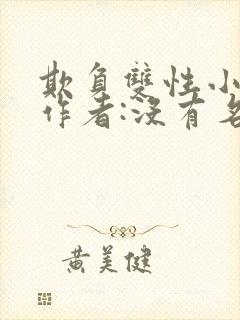 欺負雙性小
作者:沒有名
黃美健